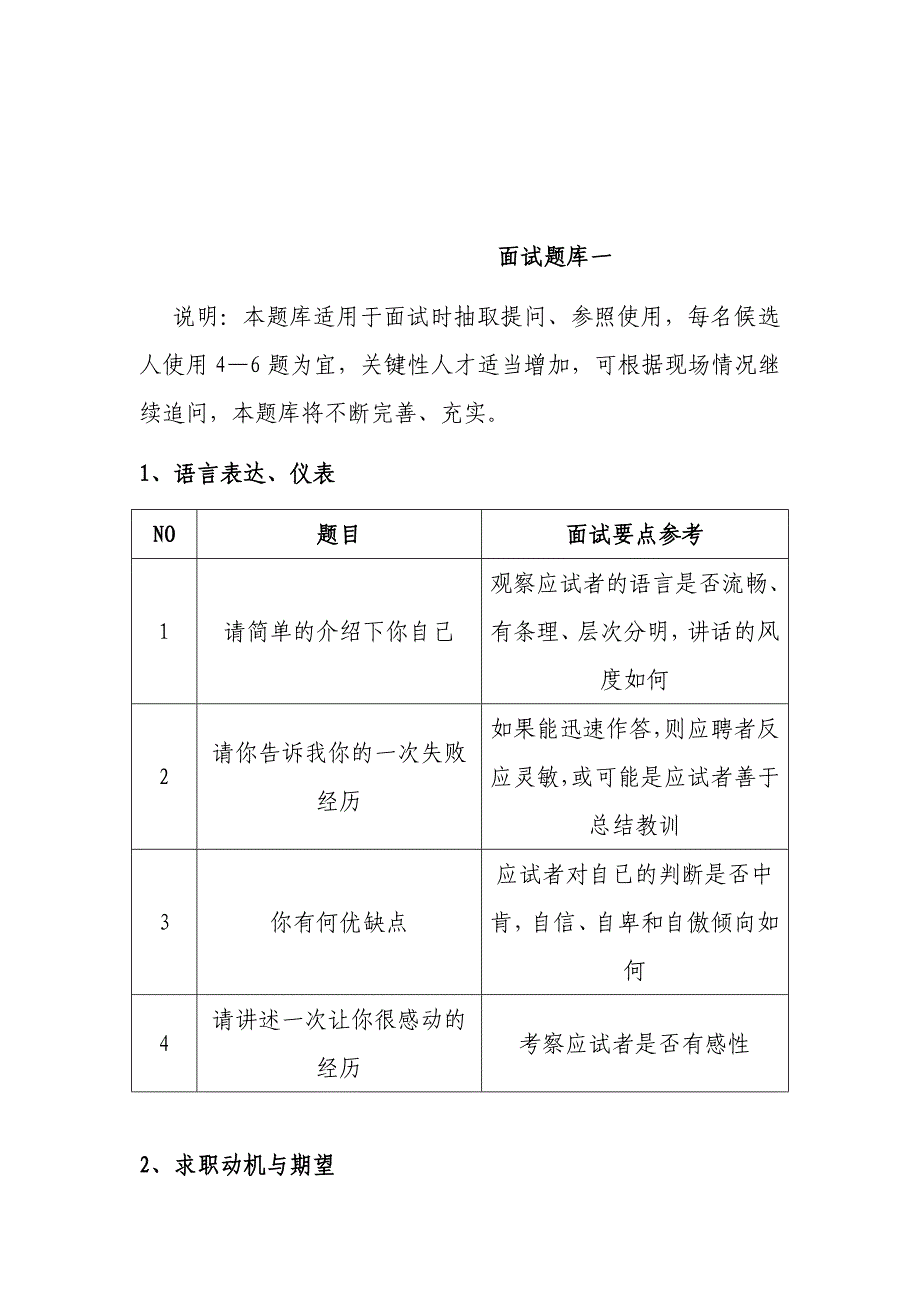 面试题库一
说明：本题库适用于面试时抽取提问、参照使用，每名候选
人使用 4—6 题为宜，关键性人才适当增加，可根据现场情况继
续追问，本题库将不断完善、充实。
1、语言表达、仪表
NO 题目 面试要点参考
1 请简单的介绍下你自己 观察应试者的语言是否流畅、
有条理、层次分明，讲话的风
度如何
2 请你告诉我你的一次失败
经历
如果能迅速作答，则应聘者反
应灵敏，或可能是应试者善于
总结教训
3 你有何优缺点 应试者对自己的判断是否中
肯，自信、自卑和自傲倾向如
何
4 请讲述一次让你很感动的
经历
考察应试者是否有感性
2、求职动机与期望